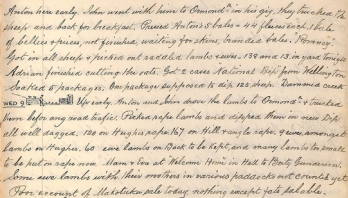 Anton here early. John went with him to Ormond in his gig, they trucked the
sheep and back for breakfast. Pressed Anton's 5 bales - 44 fleeces each. 1 bale
of bellies & pieces, not finished, waiting for skins, branded bales.
Got in all sheep & picked out saddled lambs & ewes. 139 and 13 in yard tonight
Adrian finished cutting the oats. Got 2 cases National Dip from Wellington
Soaked 5 packages. One package supposed to dip 125 sheep. Dammed creek
WED 9 Up early Anton and John drove the lambs to Ormond & trucked
them before any road traffic. Picked rape lambs and dipped them in new Dip
all well dagged. 120 on Hughs rape 167 on Hill & angle rape. 4 ewes amongst
lambs on Hughes. 60 ewe lambs on Back to be kept, and many lambs too small
to be put on rape now. Man & boa at Welcome Home in Hall to
Some ewe lambs with their mothers in various paddocks not counted yet
Poor account of Makotuku sale today nothing except fats salable.